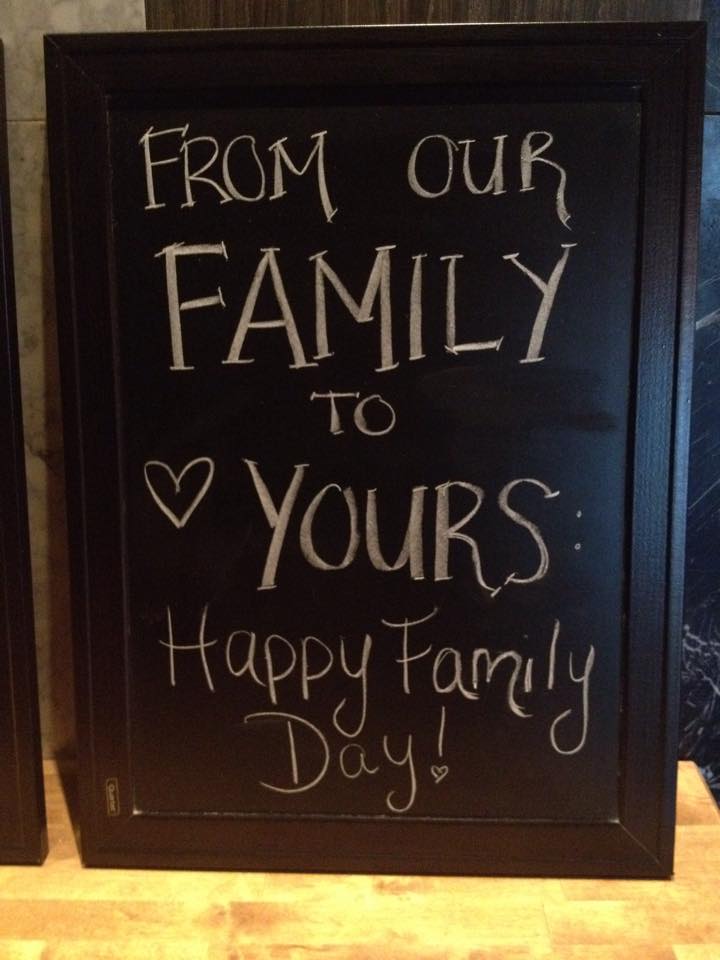 FROM OUR
FAMILY
TO
♡ YOURS:
Happy Family
Day!
Quartet